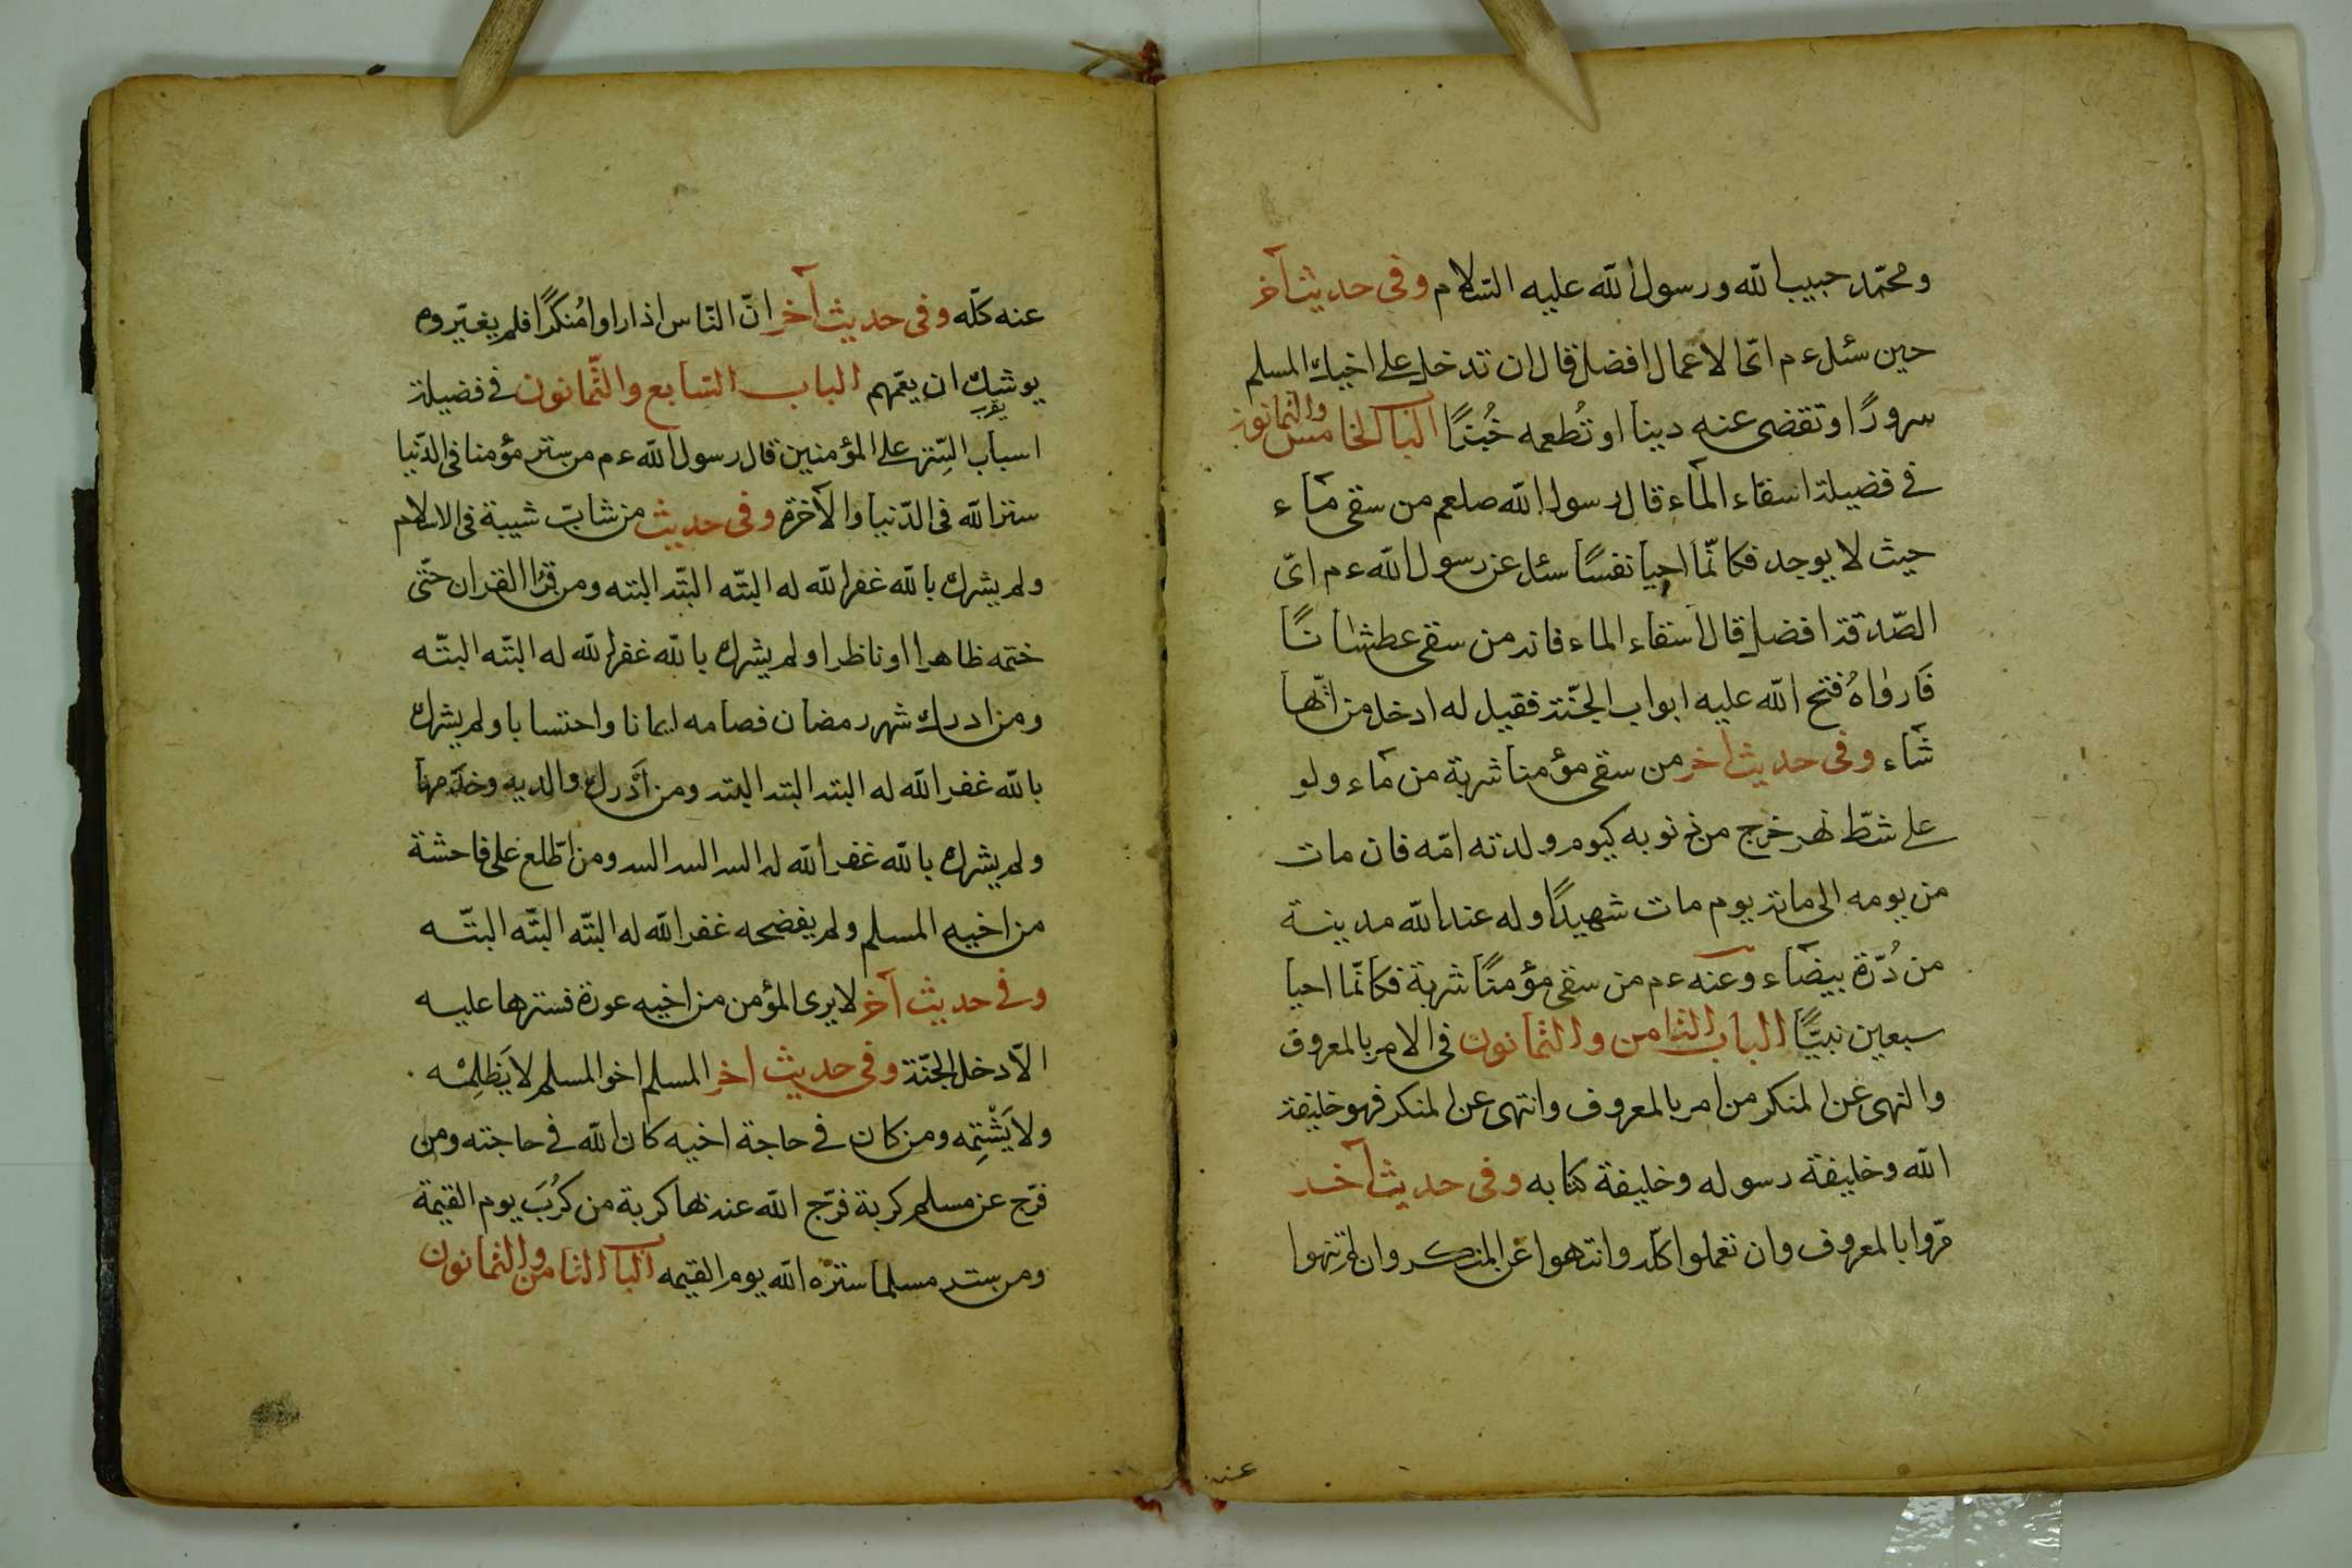 ومحمّد حبيب الله ورسول الله عليه السّلام وفى حديث آخر
حين سئل ءم اىّ الاعمال افضل قال ان تدخل على اخيك المسلم
سرورًا او تقضى عنه دينا او تُطعمه خُبزًا الباب الخامس والثمانون
فى فضيلة اسقاء الماء قال رسول الله صلعم من سقى ماء
حيث لا يوجد فكانّما احيا نفسًا سئل عن رسول الله ءم اىّ
الصّدقة افضل قال اسقاء الماء فانه من سقى عطشانًا
فارواهُ فتح الله عليه ابواب الجنّة فقيل له ادخل من ايّها
شاء وفى حديث آخر من سقى مؤمنا شربة من ماء ولو
على شطّ نهر خرج من ذنوبه كيوم ولدته امّه فان مات
من يومه الى مائة يوم مات شهيدًا وله عند الله مدينة
من دُرّة بيضاء وعنه ءم من سقى مؤمنًا شربة فكانّما احيا
سبعين نبيًّا الباب الثامن والثمانون فى الامر بالمعروف
والنهى عن المنكر من امر بالمعروف وانتهى عن المنكر فهو خليفة
الله وخليفة رسوله وخليفة كتابه وفى حديث آخر
مّروا بالمعروف وان تعملوا كلّه وانتهوا عن المنكر وان لم تنتهوا
عنه
عنه كلّه وفى حديث آخر انّ النّاس اذا راوا مُنكرًا فلم يغيّروه
يوشك ان يعمّهم الباب السّابع والثّمانون فى فضيلة
يقرب
اسباب السِّتر على المؤمنين قال رسول الله ءم من ستر مؤمنا فى الدّنيا
ستر الله فى الدّنيا والآخرة وفى حديث من شابّ شيبة فى الاسلام
ولم يشرك بالله غفر الله له البتّه البتّه البته ومن قرا القران حتّى
ختمه ظاهرا او ناظرا ولم يشرك بالله غفر الله له البتّه البتّه
ومن ادرك شهر رمضان فصامه ايمانا واحتسابا ولم يشرك
بالله غفر الله له البته البته البته ومن اَدْرك والديه وخدمهما
ولم يشرك بالله غفر الله له البته البته البته ومن اطّلع على فاحشة
من اخيه المسلم ولم يفضحه غفر الله له البتّه البتّه البتّه
وفى حديث آخر لا يرى المؤمن من اخيه عورة فسترها عليه
الّا دخل الجنّة وفى حديث اخر المسلم اخو المسلم لا يَظلِمْه
ولا يَشْتِمه ومن كان فى حاجة اخيه كان الله فى حاجته ومن
فرّج عن مسلم كربة فرّج الله عنه بها كربة من كُرَب يوم القيمة
ومن ستر مسلما ستره الله يوم القيمه الباب الثامن والثمانون